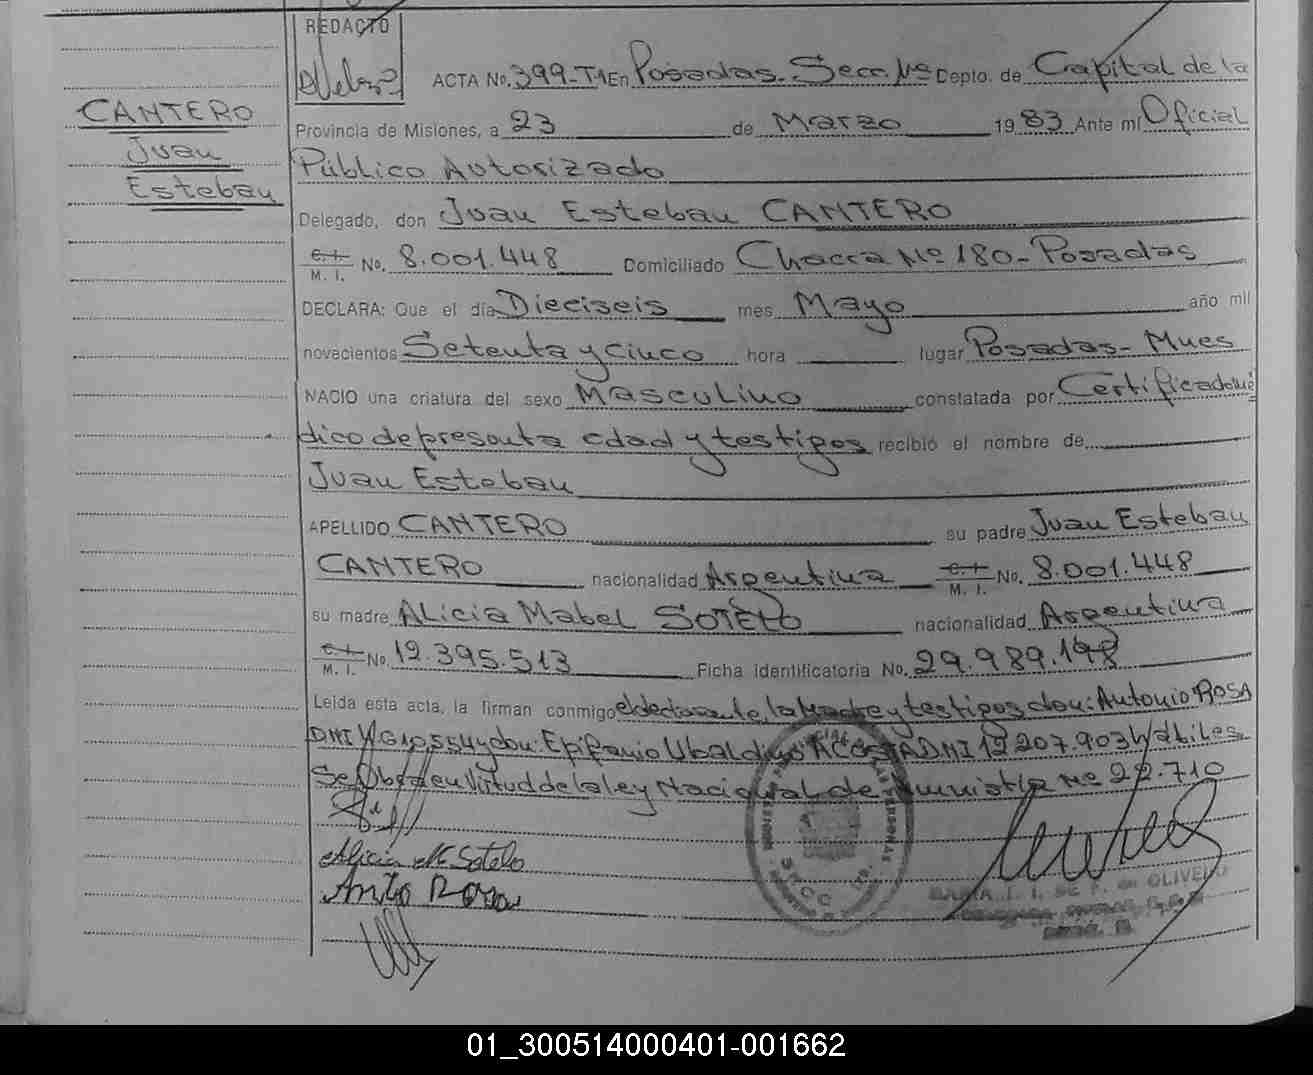 REDACTO
ACTA No. 399-T1 En Posadas. Secc. 1ª Depto. de Capital de la
CANTERO
Juan
Esteban
Provincia de Misiones, a 23 de Marzo 1983 Ante mí Oficial
Público Autorizado
Delegado, don Juan Esteban CANTERO
C. I.
M. I. No. 8.001.448 Domiciliado Chacra Nº 180- Posadas
DECLARA: Que el día Dieciseis mes Mayo año mil
novecientos Setenta y cinco hora lugar Posadas- Mnes
NACIO una criatura del sexo Masculino constatada por Certificado mé
dico de presunta edad y testigos recibió el nombre de
Juan Esteban
APELLIDO CANTERO su padre Juan Esteban
CANTERO nacionalidad Argentina C. I.
M. I. No. 8.001.448
su madre Alicia Mabel SOTELO nacionalidad Argentina
C. I.
M. I. No. 12.395.513 Ficha identificatoria No. 29.989.198
Leída esta acta, la firman conmigo el declarante, la Madre y testigos don: Antonio ROSA
DNI y don: Epifanio Ubaldino ACOSTA DNI 12 207.903 hábiles
Se Obra en Virtud de la ley Nacional de Amnistía Nº 22.710
Alicia M. Sotelo
Anto Rosa
DE OLIVERO
01_300514000401-001662